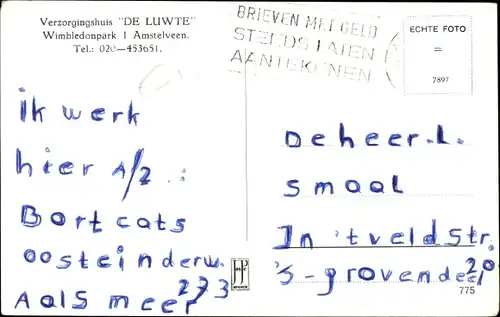 Verzorgingshuis "DE LUWTE"
Wimbledonpark 1 Amstelveen.
Tel.: 020—453651.
BRIEVEN MET GELD
STEEDS LATEN
AANTEKENEN
ECHTE FOTO
=
7897
ik werk
hier A/2 .:
Bart cats
oosteinderw.
273
Aalsmeer
De heer. L.
smaal
In 'tveldstr.
20
's-gravendeel
775